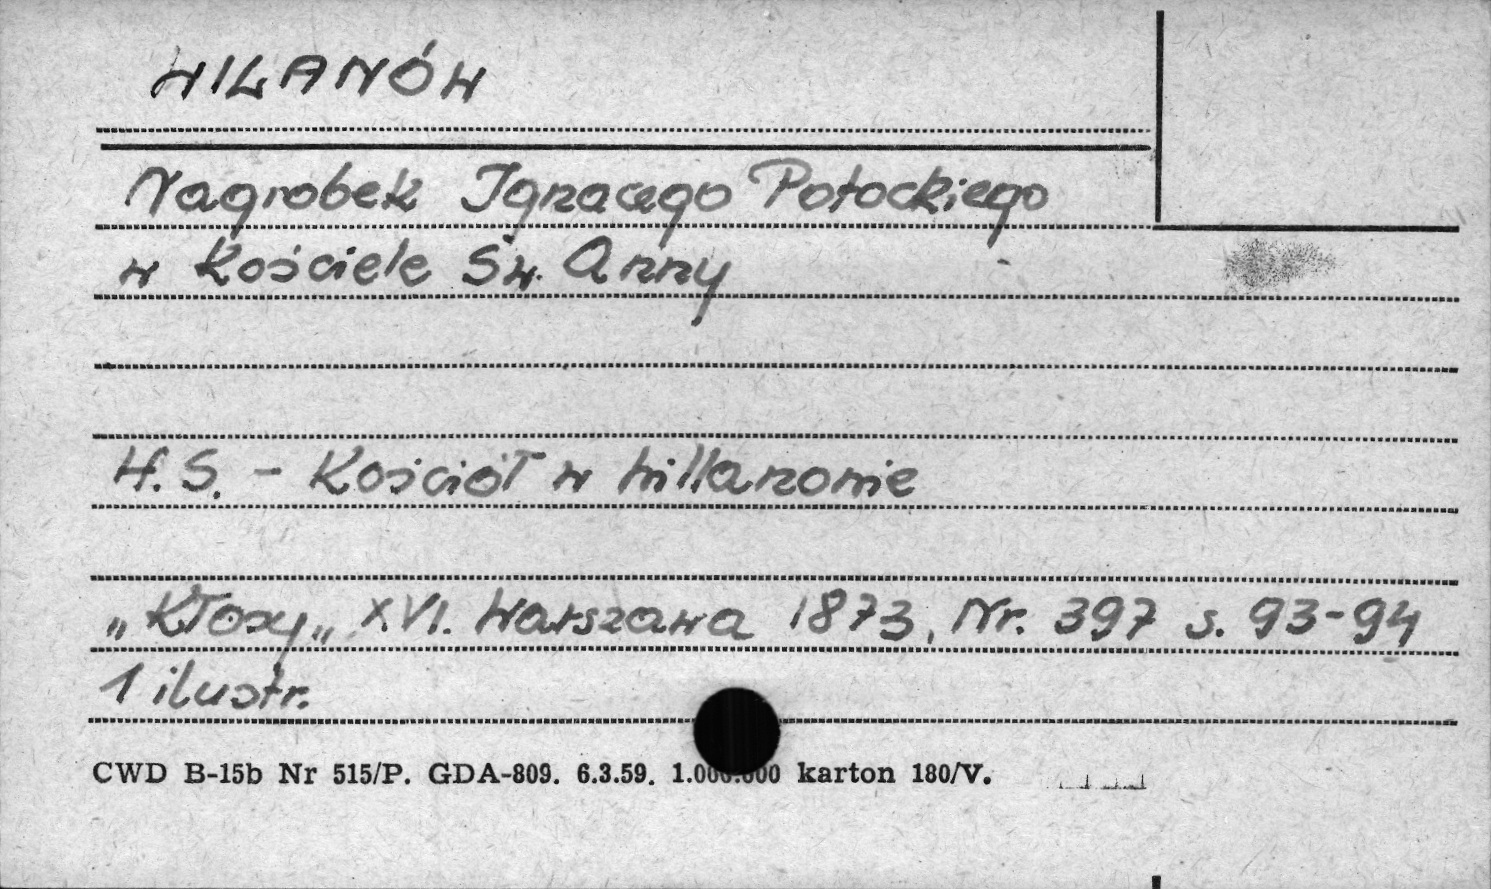 WILANÓW
Nagrobek Ignacego Potockiego
w Kościele Św. Anny
H.S. - Kościół w Willanowie
„Kłosy„ XVI. Warszawa 1873, Nr. 397 s. 93-94
1 ilustr.
CWD B-15b Nr 515/P. GDA-809. 6.3.59. 1.000.000 karton 180/V.